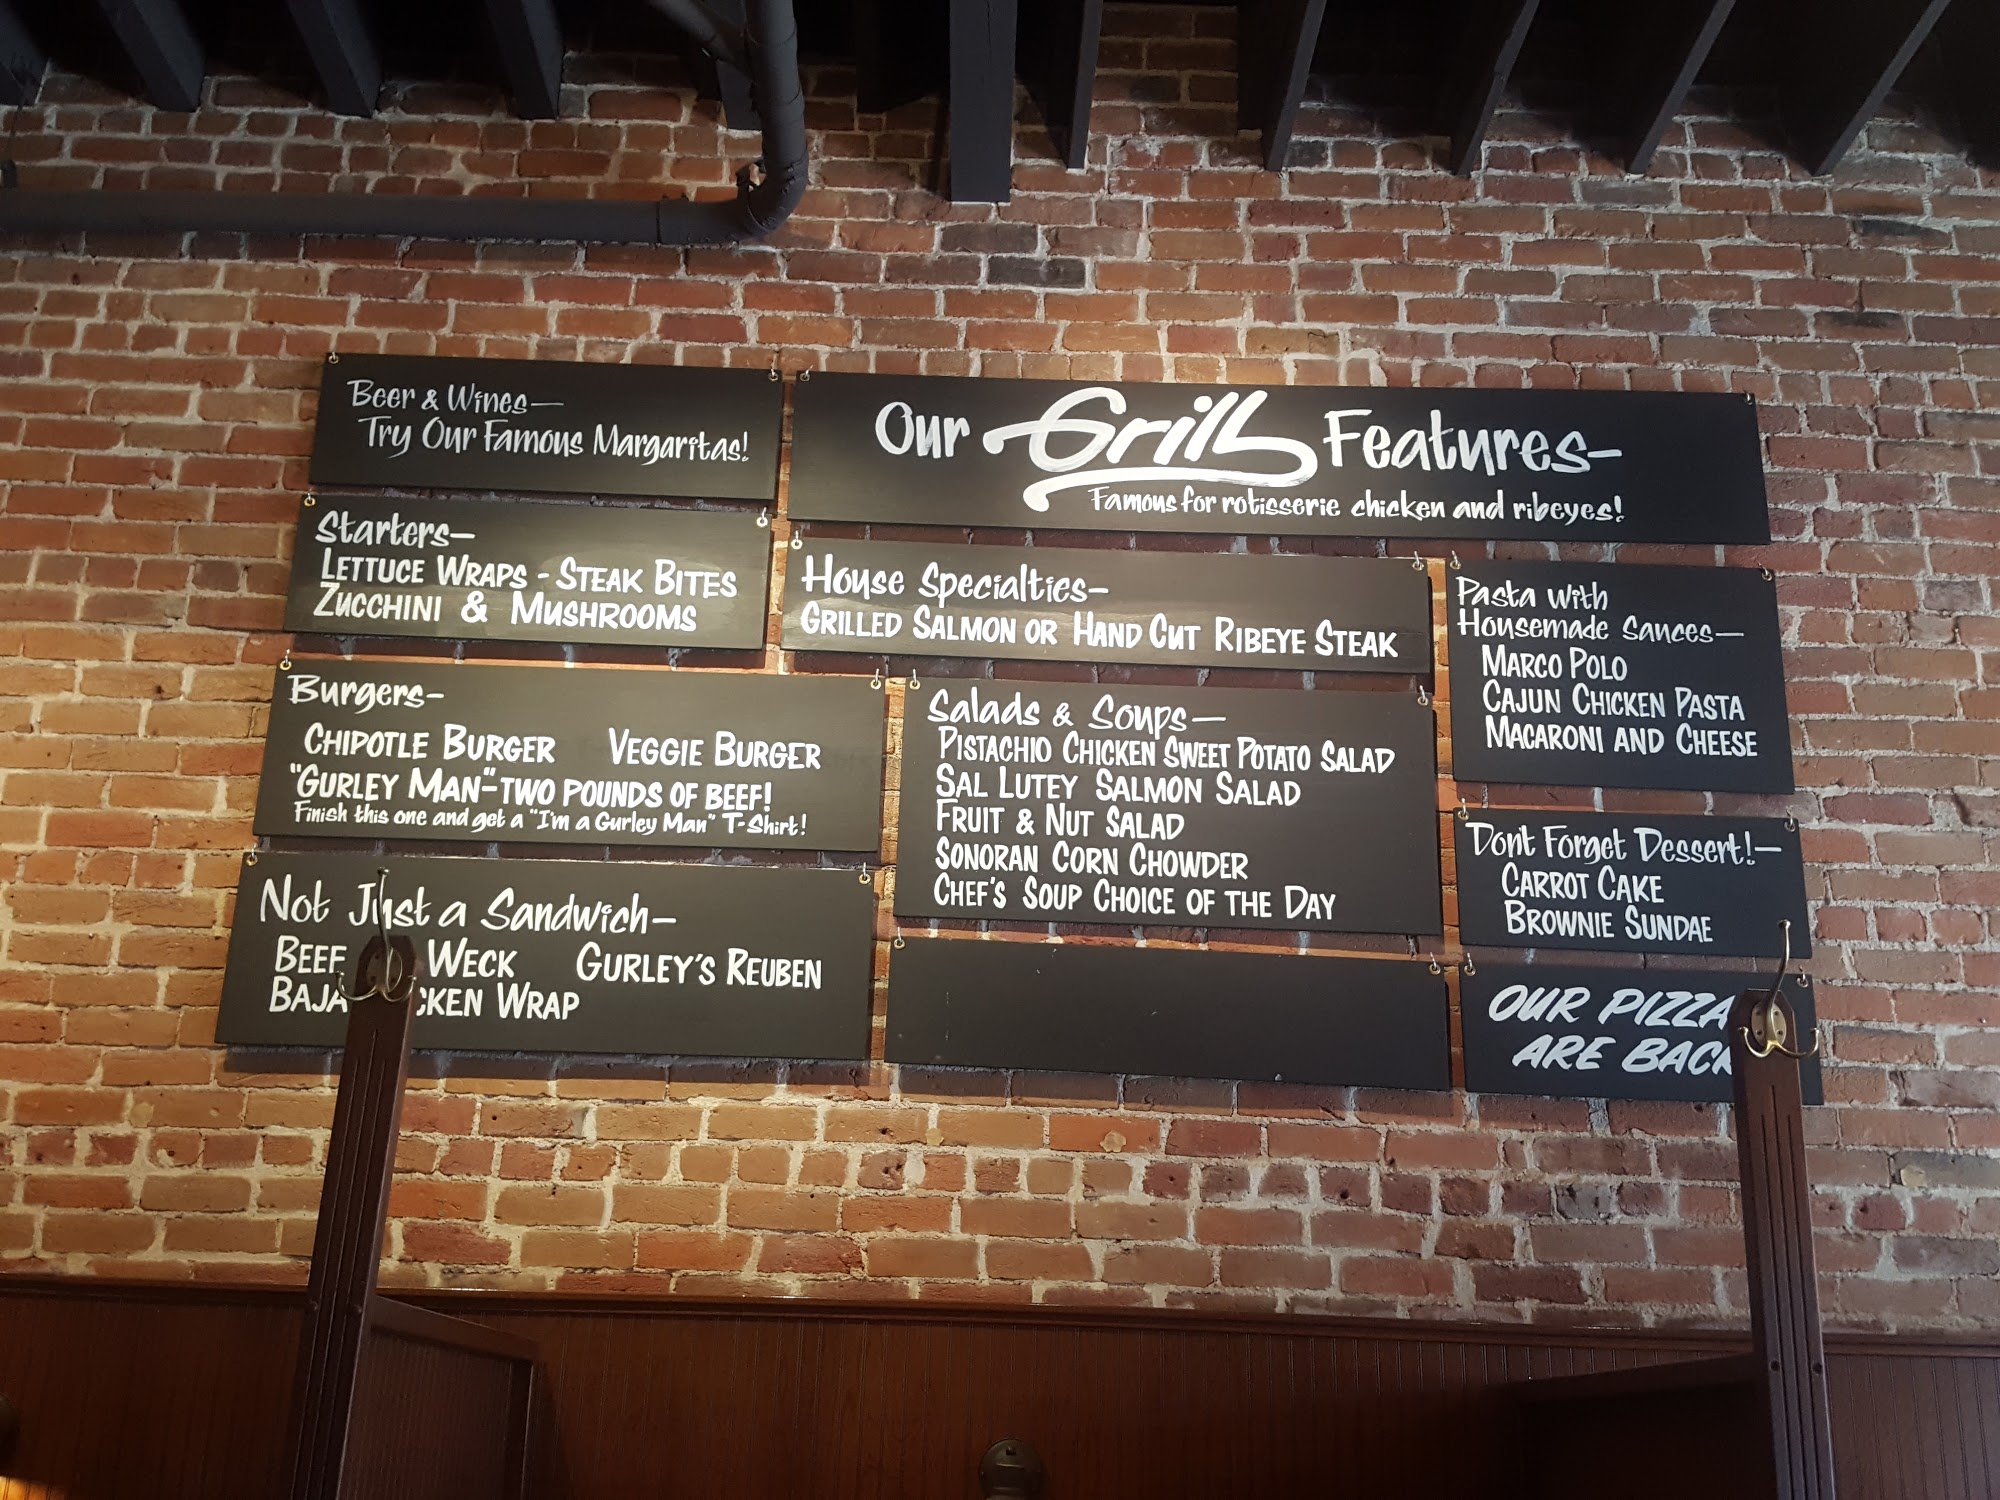 Beer & Wines—
Try Our Famous Margaritas!
Our Grill Features—
Famous for rotisserie chicken and ribeyes!
Starters—
LETTUCE WRAPS - STEAK BITES
ZUCCHINI & MUSHROOMS
House Specialties—
GRILLED SALMON OR HAND CUT RIBEYE STEAK
Pasta with
Housemade Sauces—
MARCO POLO
CAJUN CHICKEN PASTA
MACARONI AND CHEESE
Burgers—
CHIPOTLE BURGER VEGGIE BURGER
"GURLEY MAN"-TWO POUNDS OF BEEF!
Finish this one and get a "I'm a Gurley Man" T-Shirt!
Salads & Soups—
PISTACHIO CHICKEN SWEET POTATO SALAD
SAL LUTEY SALMON SALAD
FRUIT & NUT SALAD
SONORAN CORN CHOWDER
CHEF'S SOUP CHOICE OF THE DAY
Dont Forget Dessert!—
CARROT CAKE
BROWNIE SUNDAE
Not Just a Sandwich—
BEEF WECK GURLEY'S REUBEN
BAJA WRAP
OUR PIZZA
ARE BACK